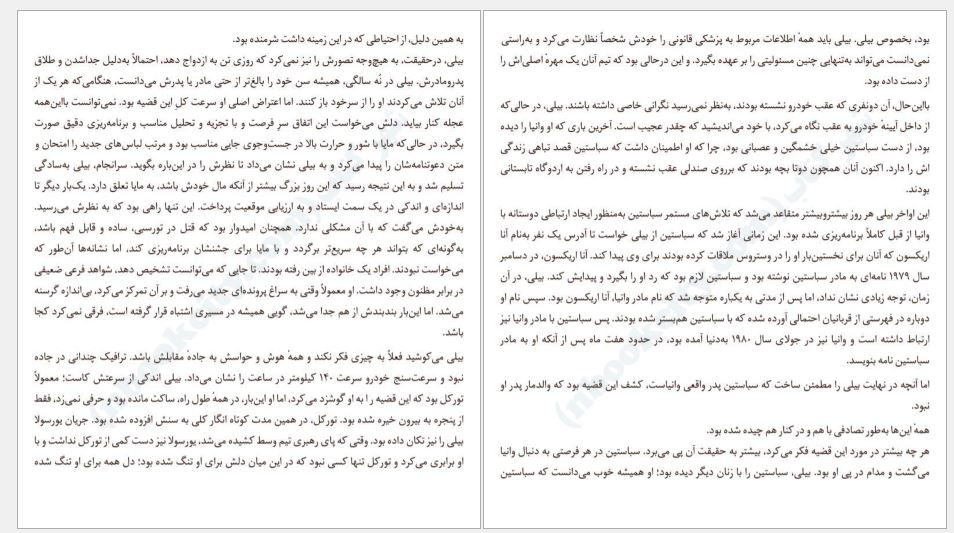 بود، بخصوص بیلی. بیلی باید همهٔ اطلاعات مربوط به پزشکی قانونی را خودش شخصاً نظارت می‌کرد و به‌راستی
نمی‌دانست می‌تواند به‌تنهایی چنین مسئولیتی را بر عهده بگیرد. و این درحالی بود که تیم آنان یک مهرهٔ اصلی‌اش را
از دست داده بود.
بااین‌حال، آن دونفری که عقب خودرو نشسته بودند، به‌نظر نمی‌رسید نگرانی خاصی داشته باشند. بیلی، در حالی‌که
از داخل آیینهٔ خودرو به عقب نگاه می‌کرد، با خود می‌اندیشید که چقدر عجیب است. آخرین باری که او وانیا را دیده
بود، از دست سباستین خیلی خشمگین و عصبانی بود، چرا که او اطمینان داشت که سباستین قصد تباهی زندگی
اش را دارد. اکنون آنان همچون دوتا بچه بودند که برروی صندلی عقب نشسته و در راه رفتن به اردوگاه تابستانی
بودند.
این اواخر بیلی هر روز بیشتروبیشتر متقاعد می‌شد که تلاش‌های مستمر سباستین به‌منظور ایجاد ارتباطی دوستانه با
وانیا از قبل کاملاً برنامه‌ریزی شده بود. این زمانی آغاز شد که سباستین از بیلی خواست تا آدرس یک نفر به‌نام آنا
اریکسون که آنان برای نخستین‌بار او را در وستروس ملاقات کرده بودند برای وی پیدا کند. آنا اریکسون، در دسامبر
سال ۱۹۷۹ نامه‌ای به مادر سباستین نوشته بود و سباستین لازم بود که رد او را بگیرد و پیدایش کند. بیلی، در آن
زمان، توجه زیادی نشان نداد، اما پس از مدتی به یکباره متوجه شد که نام مادر وانیا، آنا اریکسون بود. سپس نام او
دوباره در فهرستی از قربانیان احتمالی آورده شده که با سباستین هم‌بستر شده بودند. پس سباستین با مادر وانیا نیز
ارتباط داشته است و وانیا نیز در جولای سال ۱۹۸۰ به‌دنیا آمده بود، در حدود هفت ماه پس از آنکه او به مادر
سباستین نامه بنویسد.
اما آنچه در نهایت بیلی را مطمئن ساخت که سباستین پدر واقعی وانیاست، کشف این قضیه بود که والدمار پدر او
نبود.
همهٔ این‌ها به‌طور تصادفی با هم و در کنار هم چیده شده بود.
هر چه بیشتر در مورد این قضیه فکر می‌کرد، بیشتر به حقیقت آن پی می‌برد. سباستین در هر فرصتی به دنبال وانیا
می‌گشت و مدام در پی او بود. بیلی، سباستین را با زنان دیگر دیده بود؛ او همیشه خوب می‌دانست که سباستین
به همین دلیل، از احتیاطی که در این زمینه داشت شرمنده بود.
بیلی، درحقیقت، به هیچ‌وجه تصورش را نیز نمی‌کرد که روزی تن به ازدواج دهد، احتمالاً به‌دلیل جداشدن و طلاق
پدرومادرش. بیلی در نُه سالگی، همیشه سن خود را بالغ‌تر از حتی مادر یا پدرش می‌دانست، هنگامی‌که هر یک از
آنان تلاش می‌کردند او را از سرخود باز کنند. اما اعتراض اصلی او سرعت کل این قضیه بود. نمی‌توانست بااین‌همه
عجله کنار بیاید. دلش می‌خواست این اتفاق سر فرصت و با تجزیه و تحلیل مناسب و برنامه‌ریزی دقیق صورت
بگیرد، در حالی‌که مایا با شور و حرارت بالا در جست‌وجوی جایی مناسب بود و مرتب لباس‌های جدید را امتحان و
متن دعوتنامه‌شان را پیدا می‌کرد و به بیلی نشان می‌داد تا نظرش را در این‌باره بگوید. سرانجام، بیلی به‌سادگی
تسلیم شد و به این نتیجه رسید که این روز بزرگ بیشتر از آنکه مال خودش باشد، به مایا تعلق دارد. یک‌بار دیگر تا
اندازه‌ای و اندکی در یک سمت ایستاد و به ارزیابی موقعیت پرداخت. این تنها راهی بود که به نظرش می‌رسید.
به‌خودش می‌گفت که با آن مشکلی ندارد. همچنان امیدوار بود که قتل در تورسبی، ساده و قابل فهم باشد،
به‌گونه‌ای که بتواند هر چه سریع‌تر برگردد و با مایا برای جشنشان برنامه‌ریزی کند، اما نشانه‌ها آن‌طور که
می‌خواست نبودند. افراد یک خانواده از بین رفته بودند. تا جایی که می‌توانست تشخیص دهد، شواهد فرعی ضعیفی
در برابر مظنون وجود داشت. او معمولاً وقتی به سراغ پرونده‌ای جدید می‌رفت و بر آن تمرکز می‌کرد، بی‌اندازه گرسنه
می‌شد. اما این‌بار بندبندش از هم جدا می‌شد، گویی همیشه در مسیری اشتباه قرار گرفته است، فرقی نمی‌کرد کجا
باشد.
بیلی می‌کوشید فعلاً به چیزی فکر نکند و همهٔ هوش و حواسش به جادهٔ مقابلش باشد. ترافیک چندانی در جاده
نبود و سرعت‌سنج خودرو سرعت ۱۴۰ کیلومتر در ساعت را نشان می‌داد. بیلی اندکی از سرعتش کاست؛ معمولاً
تورکل بود که این قضیه را به او گوشزد می‌کرد، اما او این‌بار، در همهٔ طول راه، ساکت مانده بود و حرفی نمی‌زد، فقط
از پنجره به بیرون خیره شده بود. تورکل، در همین مدت کوتاه انگار کلی به سنش افزوده شده بود. جریان یورسولا
بیلی را نیز تکان داده بود. وقتی که پای رهبری تیم وسط کشیده می‌شد، یورسولا نیز دست کمی از تورکل نداشت و با
او برابری می‌کرد و تورکل تنها کسی نبود که در این میان دلش برای او تنگ شده بود؛ دل همه برای او تنگ شده